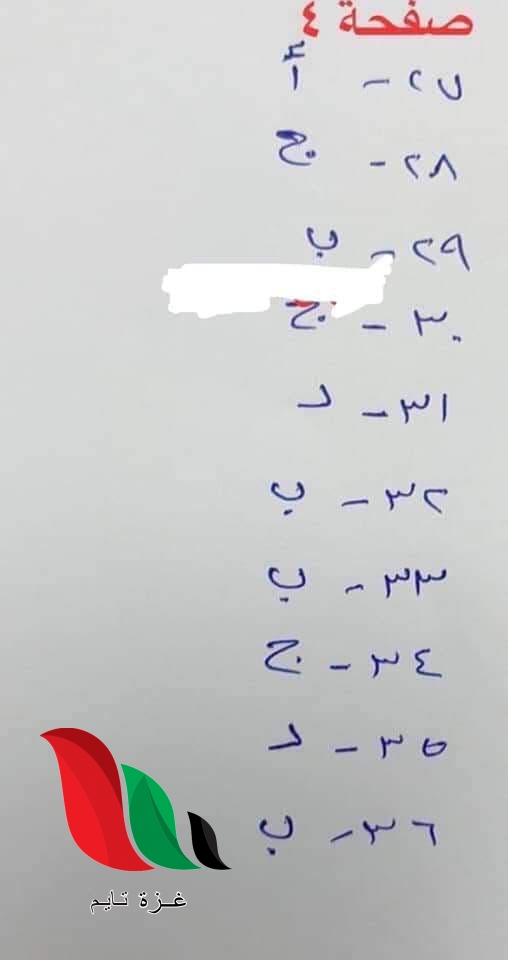 صفحة ٤
٢٧ - أ
٢٨ - ج
٢٩ - ب
٣٠ - ج
٣١ - د
٣٢ - ب
٣٣ - ب
٣٤ - ج
٣٥ - د
٣٦ - ب
غزة تايم